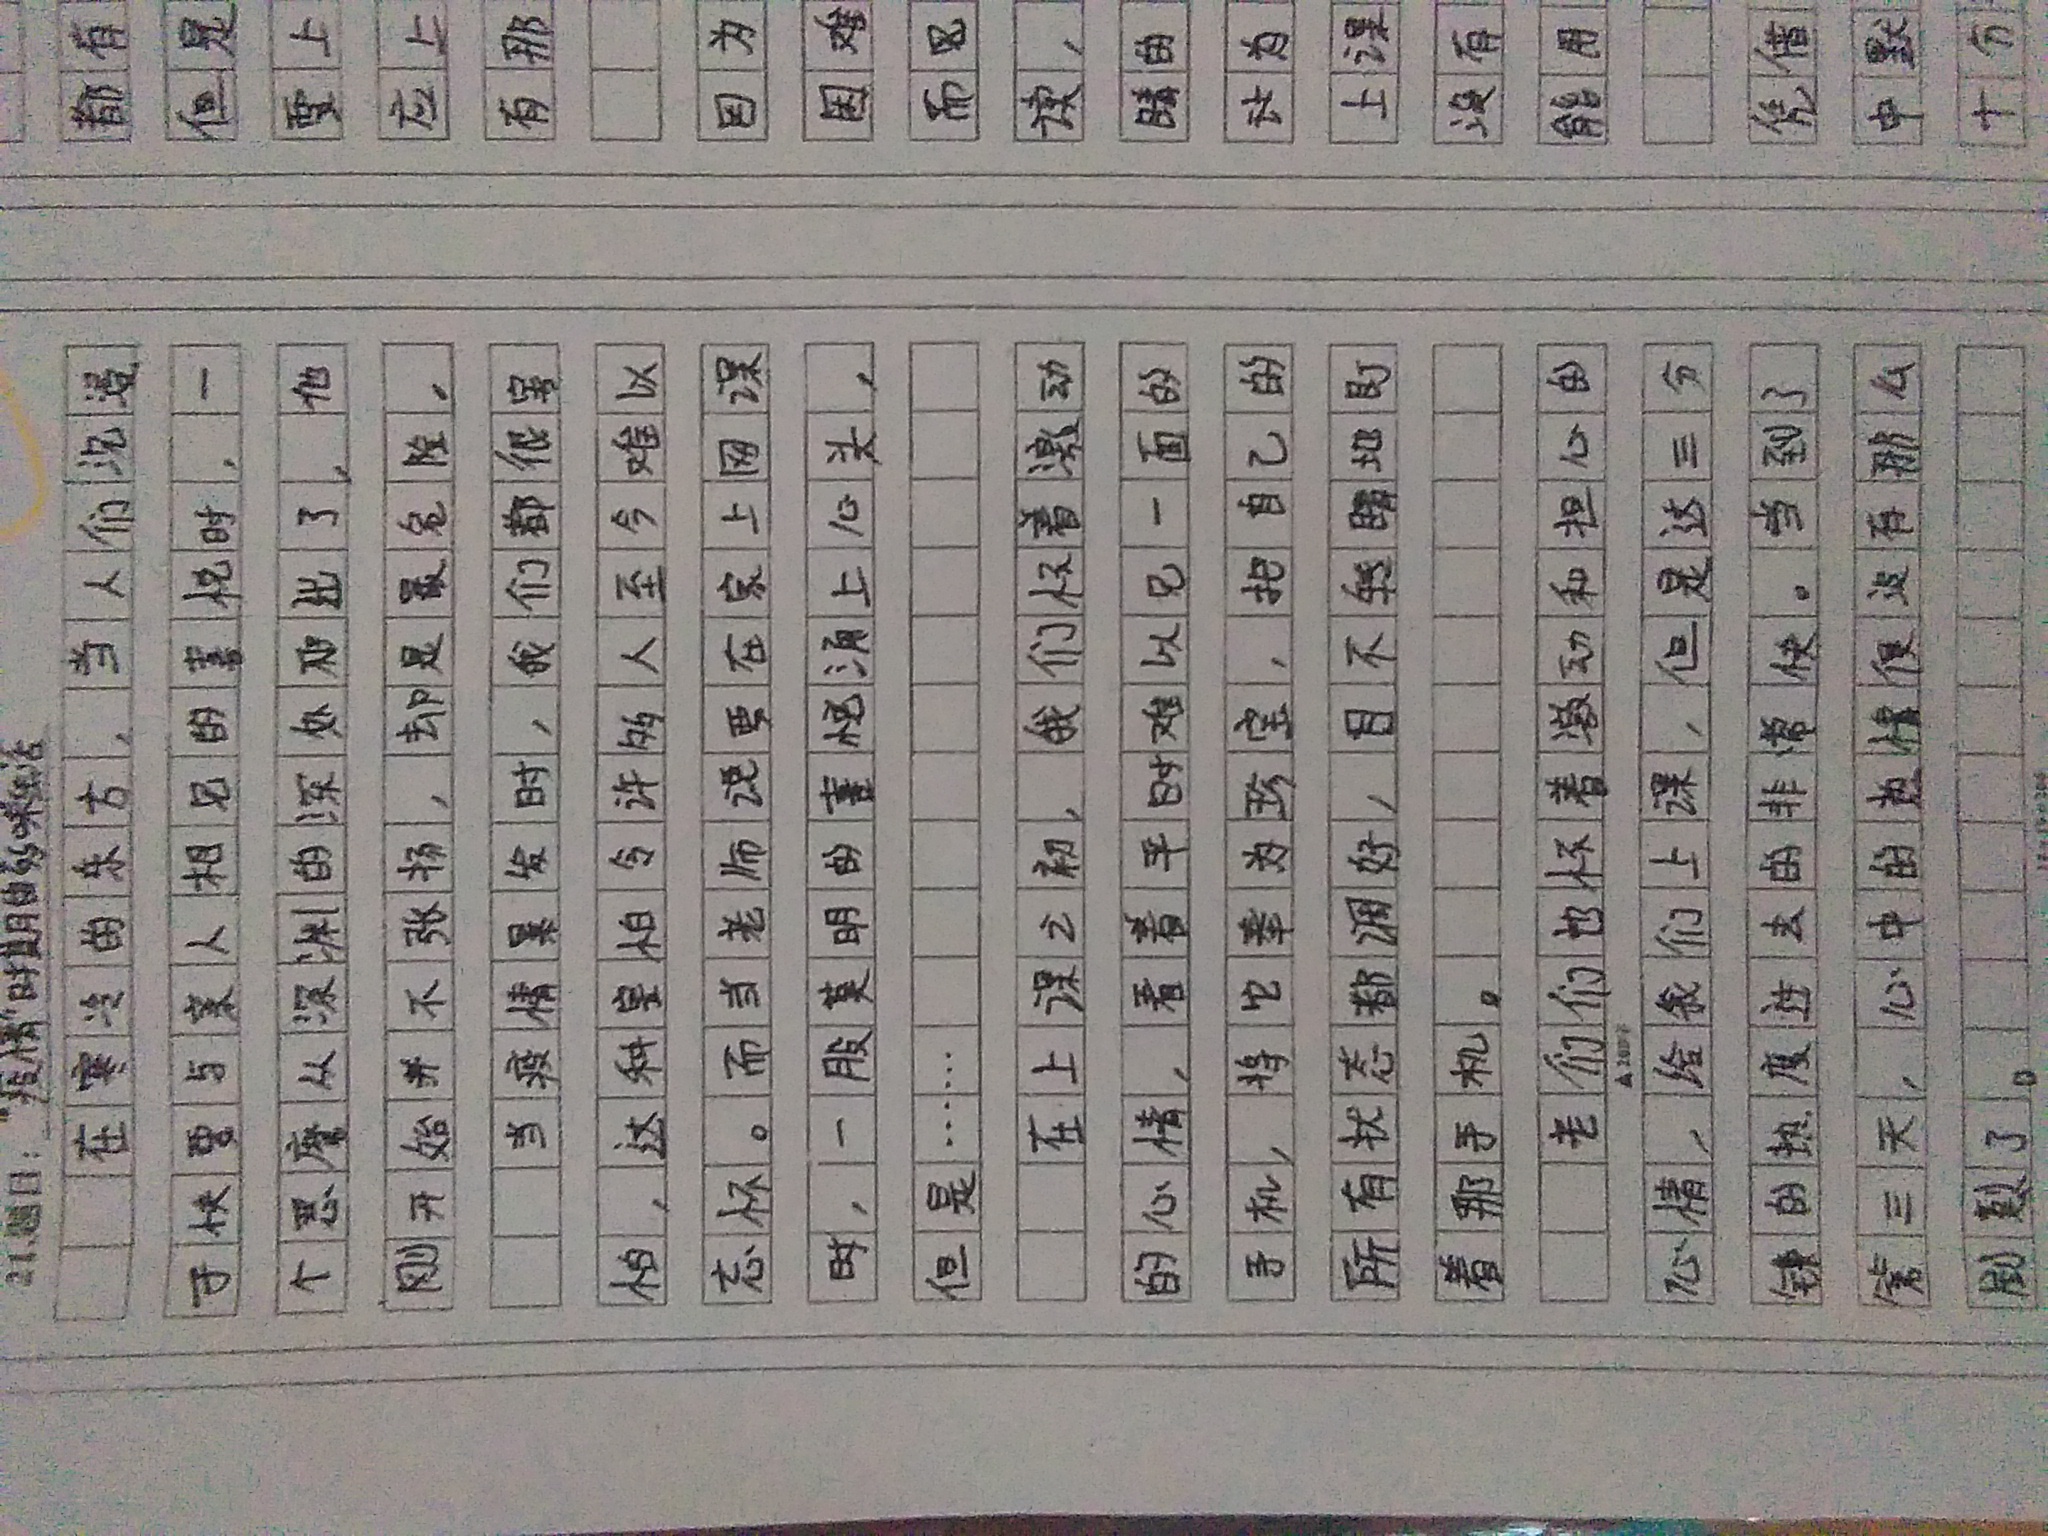 21.题目："疫情"时期的多味生活
在寒冷的东方，当人们沉浸
于快要与家人相见的喜悦时，一
个恶魔从深渊的深处 出了，他
刚开始并不张扬，却是最危险。
当疫情暴发时，我们都很害
怕，这种害怕令许多人至今难以
忘怀。而当老师说要在家上网课
时，一股莫明的喜悦涌上心头，
但是……
在上课之初，我们怀着激动
的心情，看着平时难以见一面的
手机，将它奉为珍宝，把自己的
所有状态都调好，目不转睛地盯
着那手机。
老们们也怀着激动和担心的
心情，给我们上课，但是这三分
钟的热度过去的非常快。当到了
第三天，心中的热情便没有那么
了。
都有
但是
要上
应上
有那
因为
困难
而见
读，
睛的
为
上课
没有
能用
凭借
中默
十分